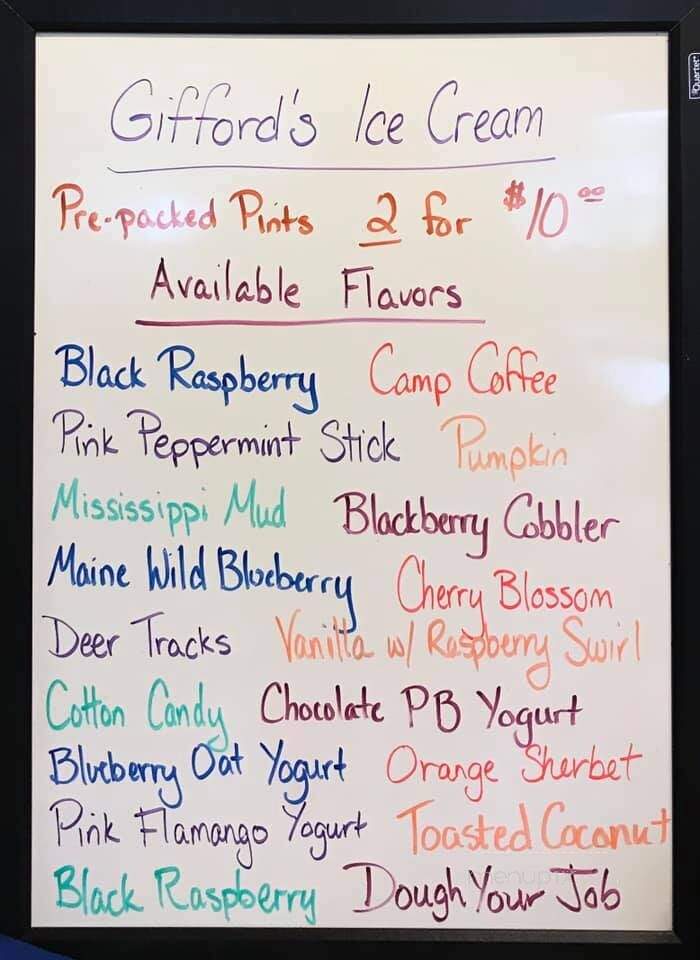 Gifford's Ice Cream
Pre-packed Pints 2 for $10.00
Available Flavors
Black Raspberry Camp Coffee
Pink Peppermint Stick Pumpkin
Mississippi Mud Blackberry Cobbler
Maine Wild Blueberry Cherry Blossom
Deer Tracks Vanilla w/ Raspberry Swirl
Cotton Candy Chocolate PB Yogurt
Blueberry Oat Yogurt Orange Sherbet
Pink Flamango Yogurt Toasted Coconut
Black Raspberry Dough Your Job
Quartet